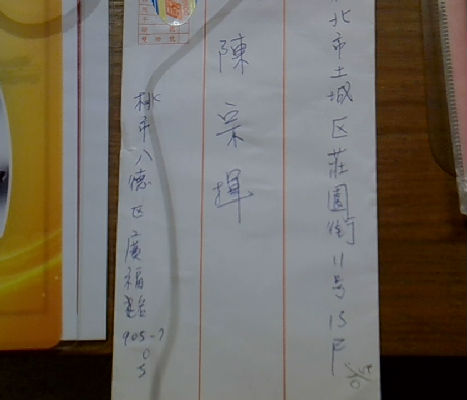 北市土城区莊園街11号15F
陳宗揮
桃市八德区廣福路
905-7